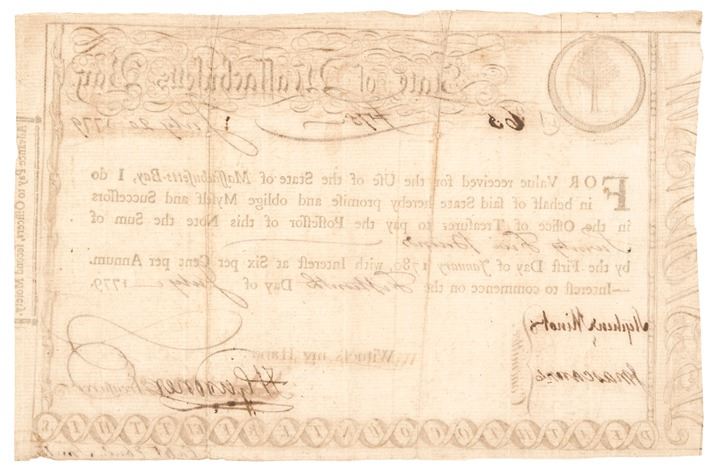 State of Massachusetts-Bay,
£ 63
475
July 22 1779
FOR Value received for the Use of the State of Massachusetts-Bay, I do
in behalf of said State hereby promise and oblige Myself and Successors
in the Office of Treasurer to pay the Possessor of this Note the Sum of
Seventy Five Pounds
by the First Day of January 1782, with Interest at Six per Cent per Annum.
—Interest to commence on the Fifteenth Day of July 1779.
Witness my Hand
Stephen Minot
H Gardner Treasurer
Mascarene
Advance Pay to Officers, second Moiety.